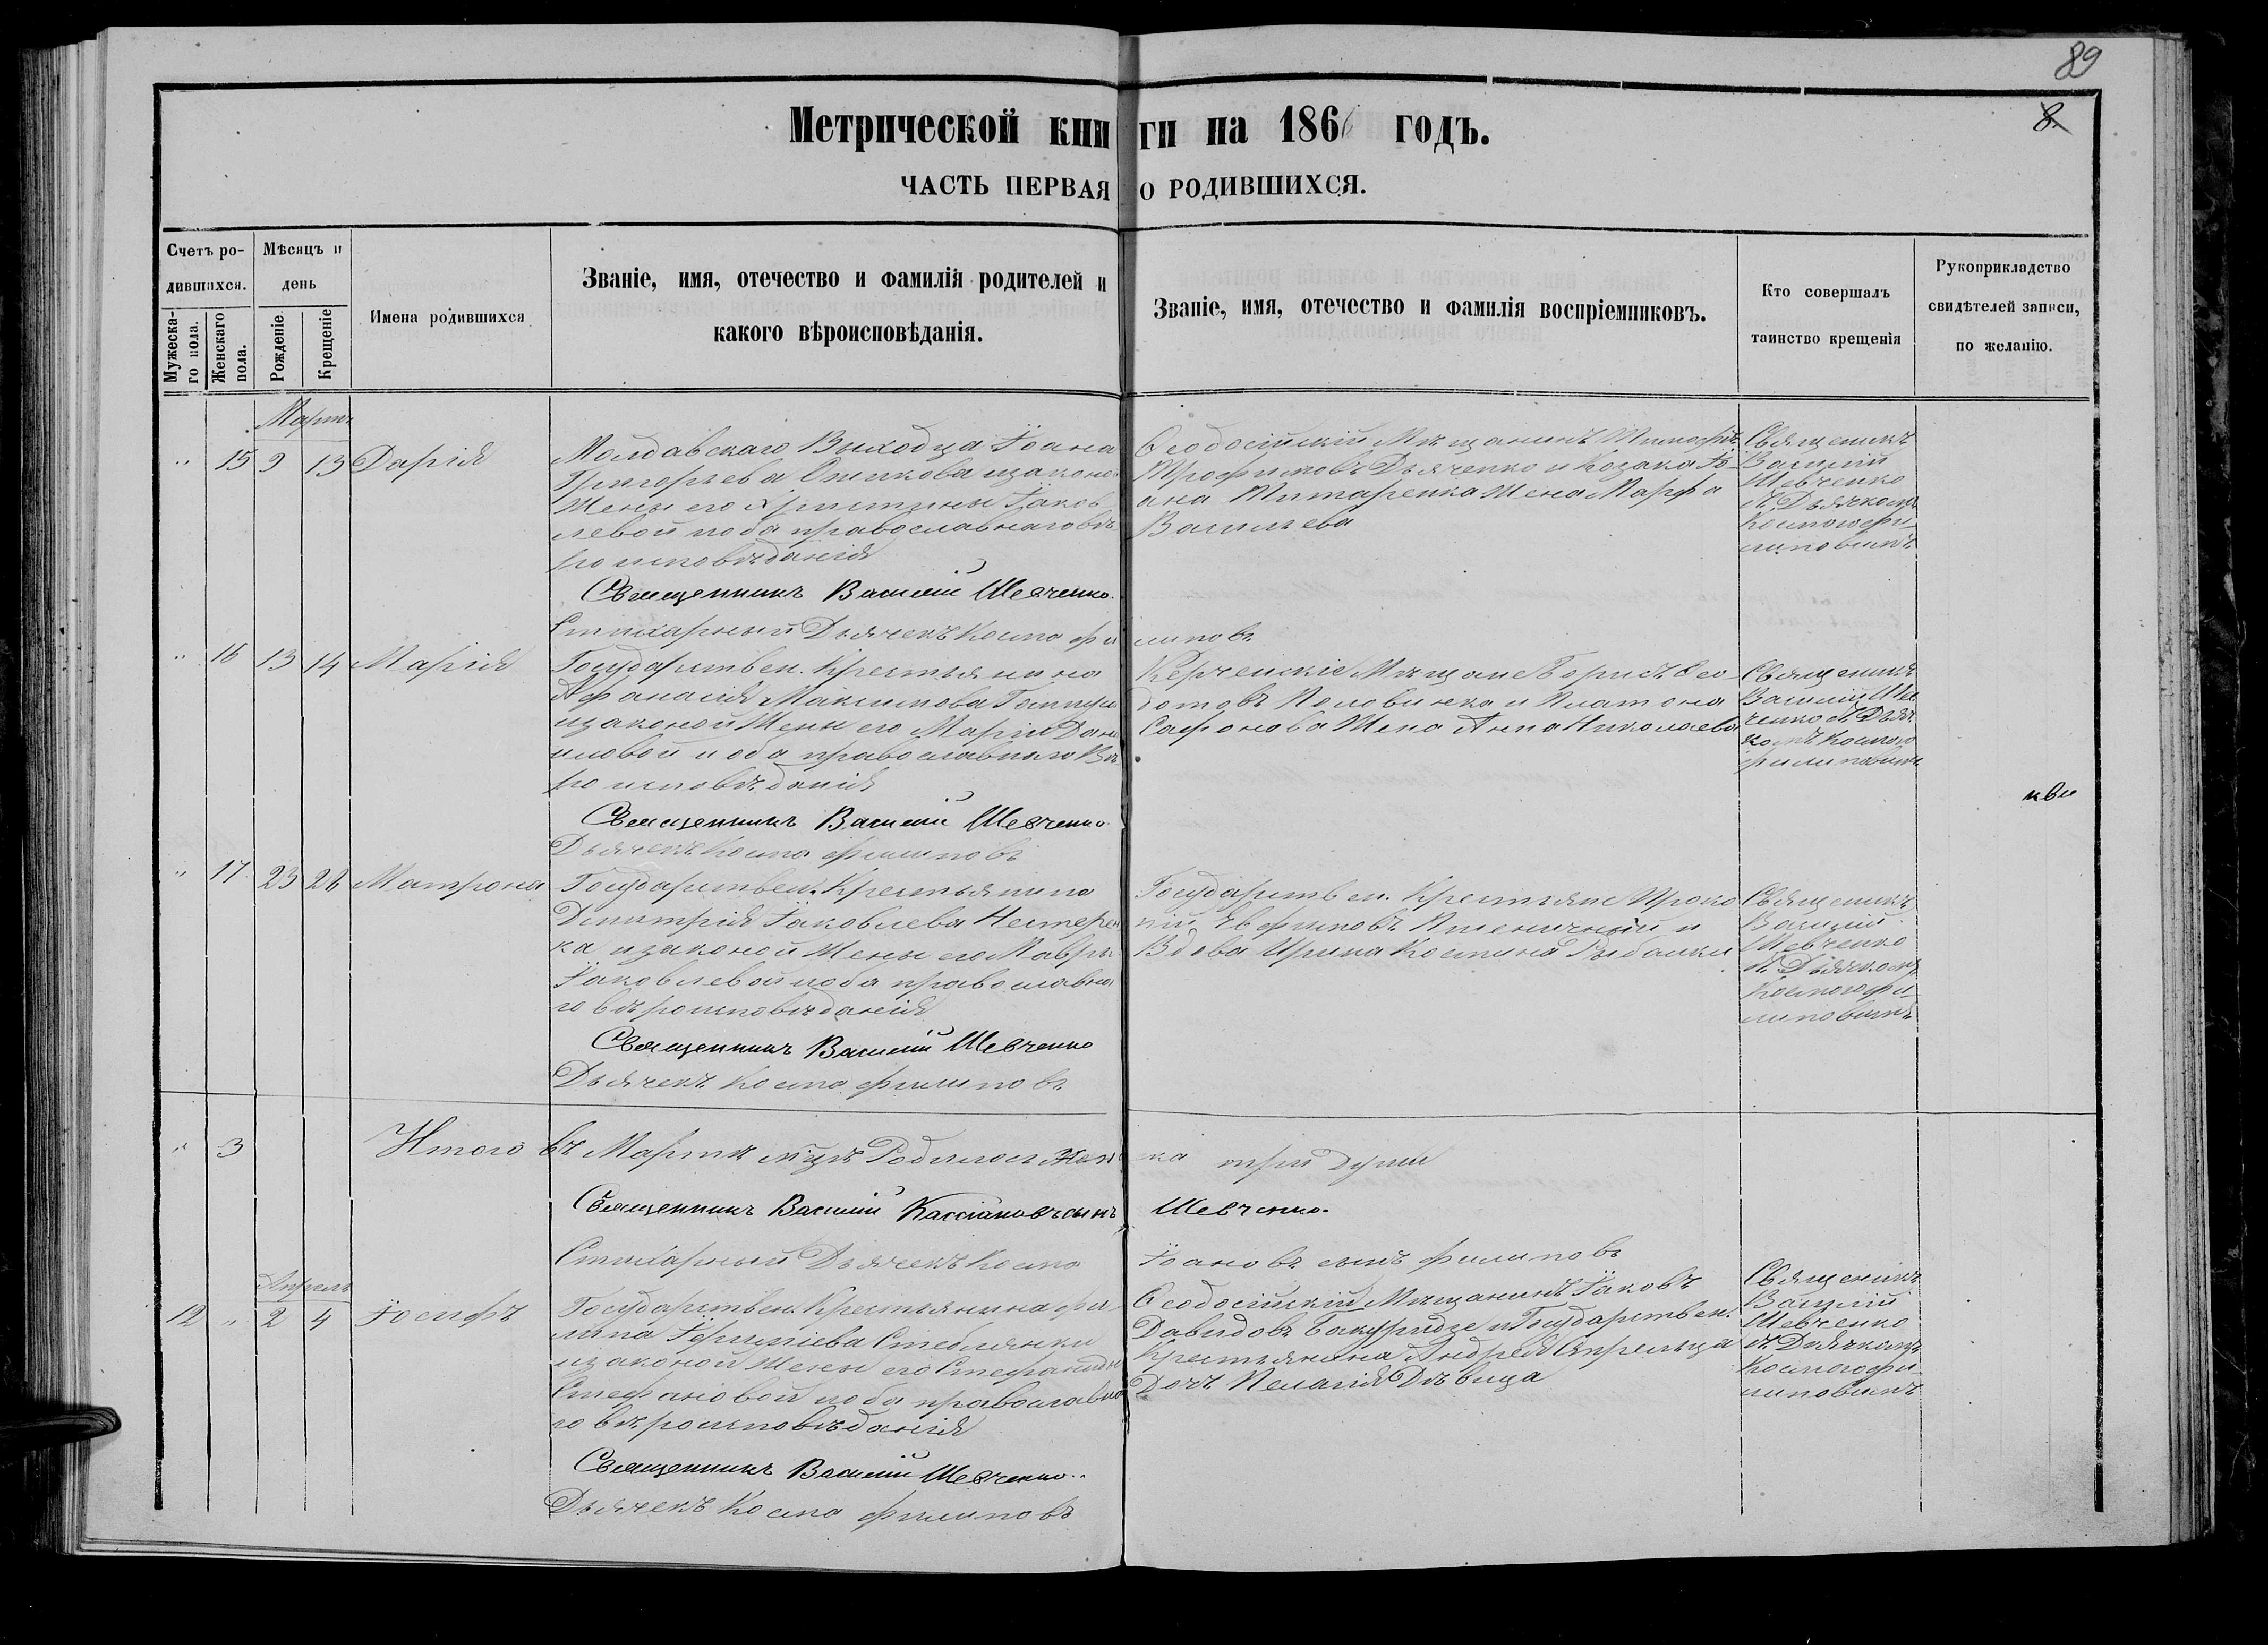 89
8.
Метрической книги на 1866 годъ.
ЧАСТЬ ПЕРВАЯ О РОДИВШИХСЯ.
Счетъ родившихся.
Мужескаго пола.
Женскаго пола.
Мѣсяцъ и день
Рожденіе.
Крещеніе
Имена родившихся
Званіе, имя, отечество и фамилія родителей и
какого вѣроисповѣданія.
Званіе, имя, отечество и фамилія воспріемниковъ.
Кто совершалъ
таинство крещенія
Рукоприкладство
свидѣтелей записи,
по желанію.
Мартъ
" 15 9 13 Дарія
Молдавскаго Выходца Іоана
Григорьева изаконой
Жены его Христины Іаков
левой иоба православнаго вѣ
роисповѣданія
Священникъ Василій Шевченко.
Стихарный Дьячекъ Косма Филиповъ
Ѳеодосійскій Мѣщанинъ Тимофѣй
Трофимовъ Дьяченко и Козака Іо
ана Титаренка Жена Марфа
Васильева
Священикъ
Василій
Шевченко
съ Дьячкомъ
Космою Фи
липовымъ
" 16 13 14 Марія
Государствен. Крестьянина
Афанасія Максимова
изаконой Жены его Маріи Дани
иловой иоба православнаго Вѣ
роисповѣданія
Священникъ Василій Шевченко.
Дьячекъ Косма Филиповъ
Керченскіе Мѣщане Борисъ Ѳео
дотовъ Половинка и Платона
Сафонова Жена Анна Николаева
Священикъ
Василій Шев
ченко съ Дьяч
комъ Космою
Филиповымъ
" 17 23 28 Матрона
Государствен. Крестьянина
Димитрія Іаковлева Нестерен
ка изаконой Жены его Мавры
Іаковлевой иоба православна
го вѣроисповѣданія
Священникъ Василій Шевченко
Дьячекъ Косма Филиповъ
Государствен. Крестьяне Проко
пій Ефимовъ Пшеничный и
Вдова Ирина Космина Рыбалка
Священикъ
Василій
Шевченко
съ Дьячкомъ
Космою Фи
липовымъ
" 3 Итого въ Мартѣ мцѣ Родилось Женска три души
Священникъ Василій Кассіановъ сынъ Шевченко.
Стихарный Дьячекъ Косма Іоановъ сынъ Филиповъ
Апрель
12 " 2 4 Іосифъ
Государствен. Крестьянина Фи
липа Стеблянки
изаконой Жены его Стефаниды
Стефановой иоба православна
го вѣроисповѣданія
Священникъ Василій Шевченко.
Дьячекъ Косма Филиповъ
Ѳеодосійскій Мѣщанинъ Іаковъ
Давидовъ и Государствен.
Крестьянина Андрея
Дочь Пелагія Дѣвица
Священикъ
Василій
Шевченко
съ Дьячкомъ
Космою Фи
липовымъ